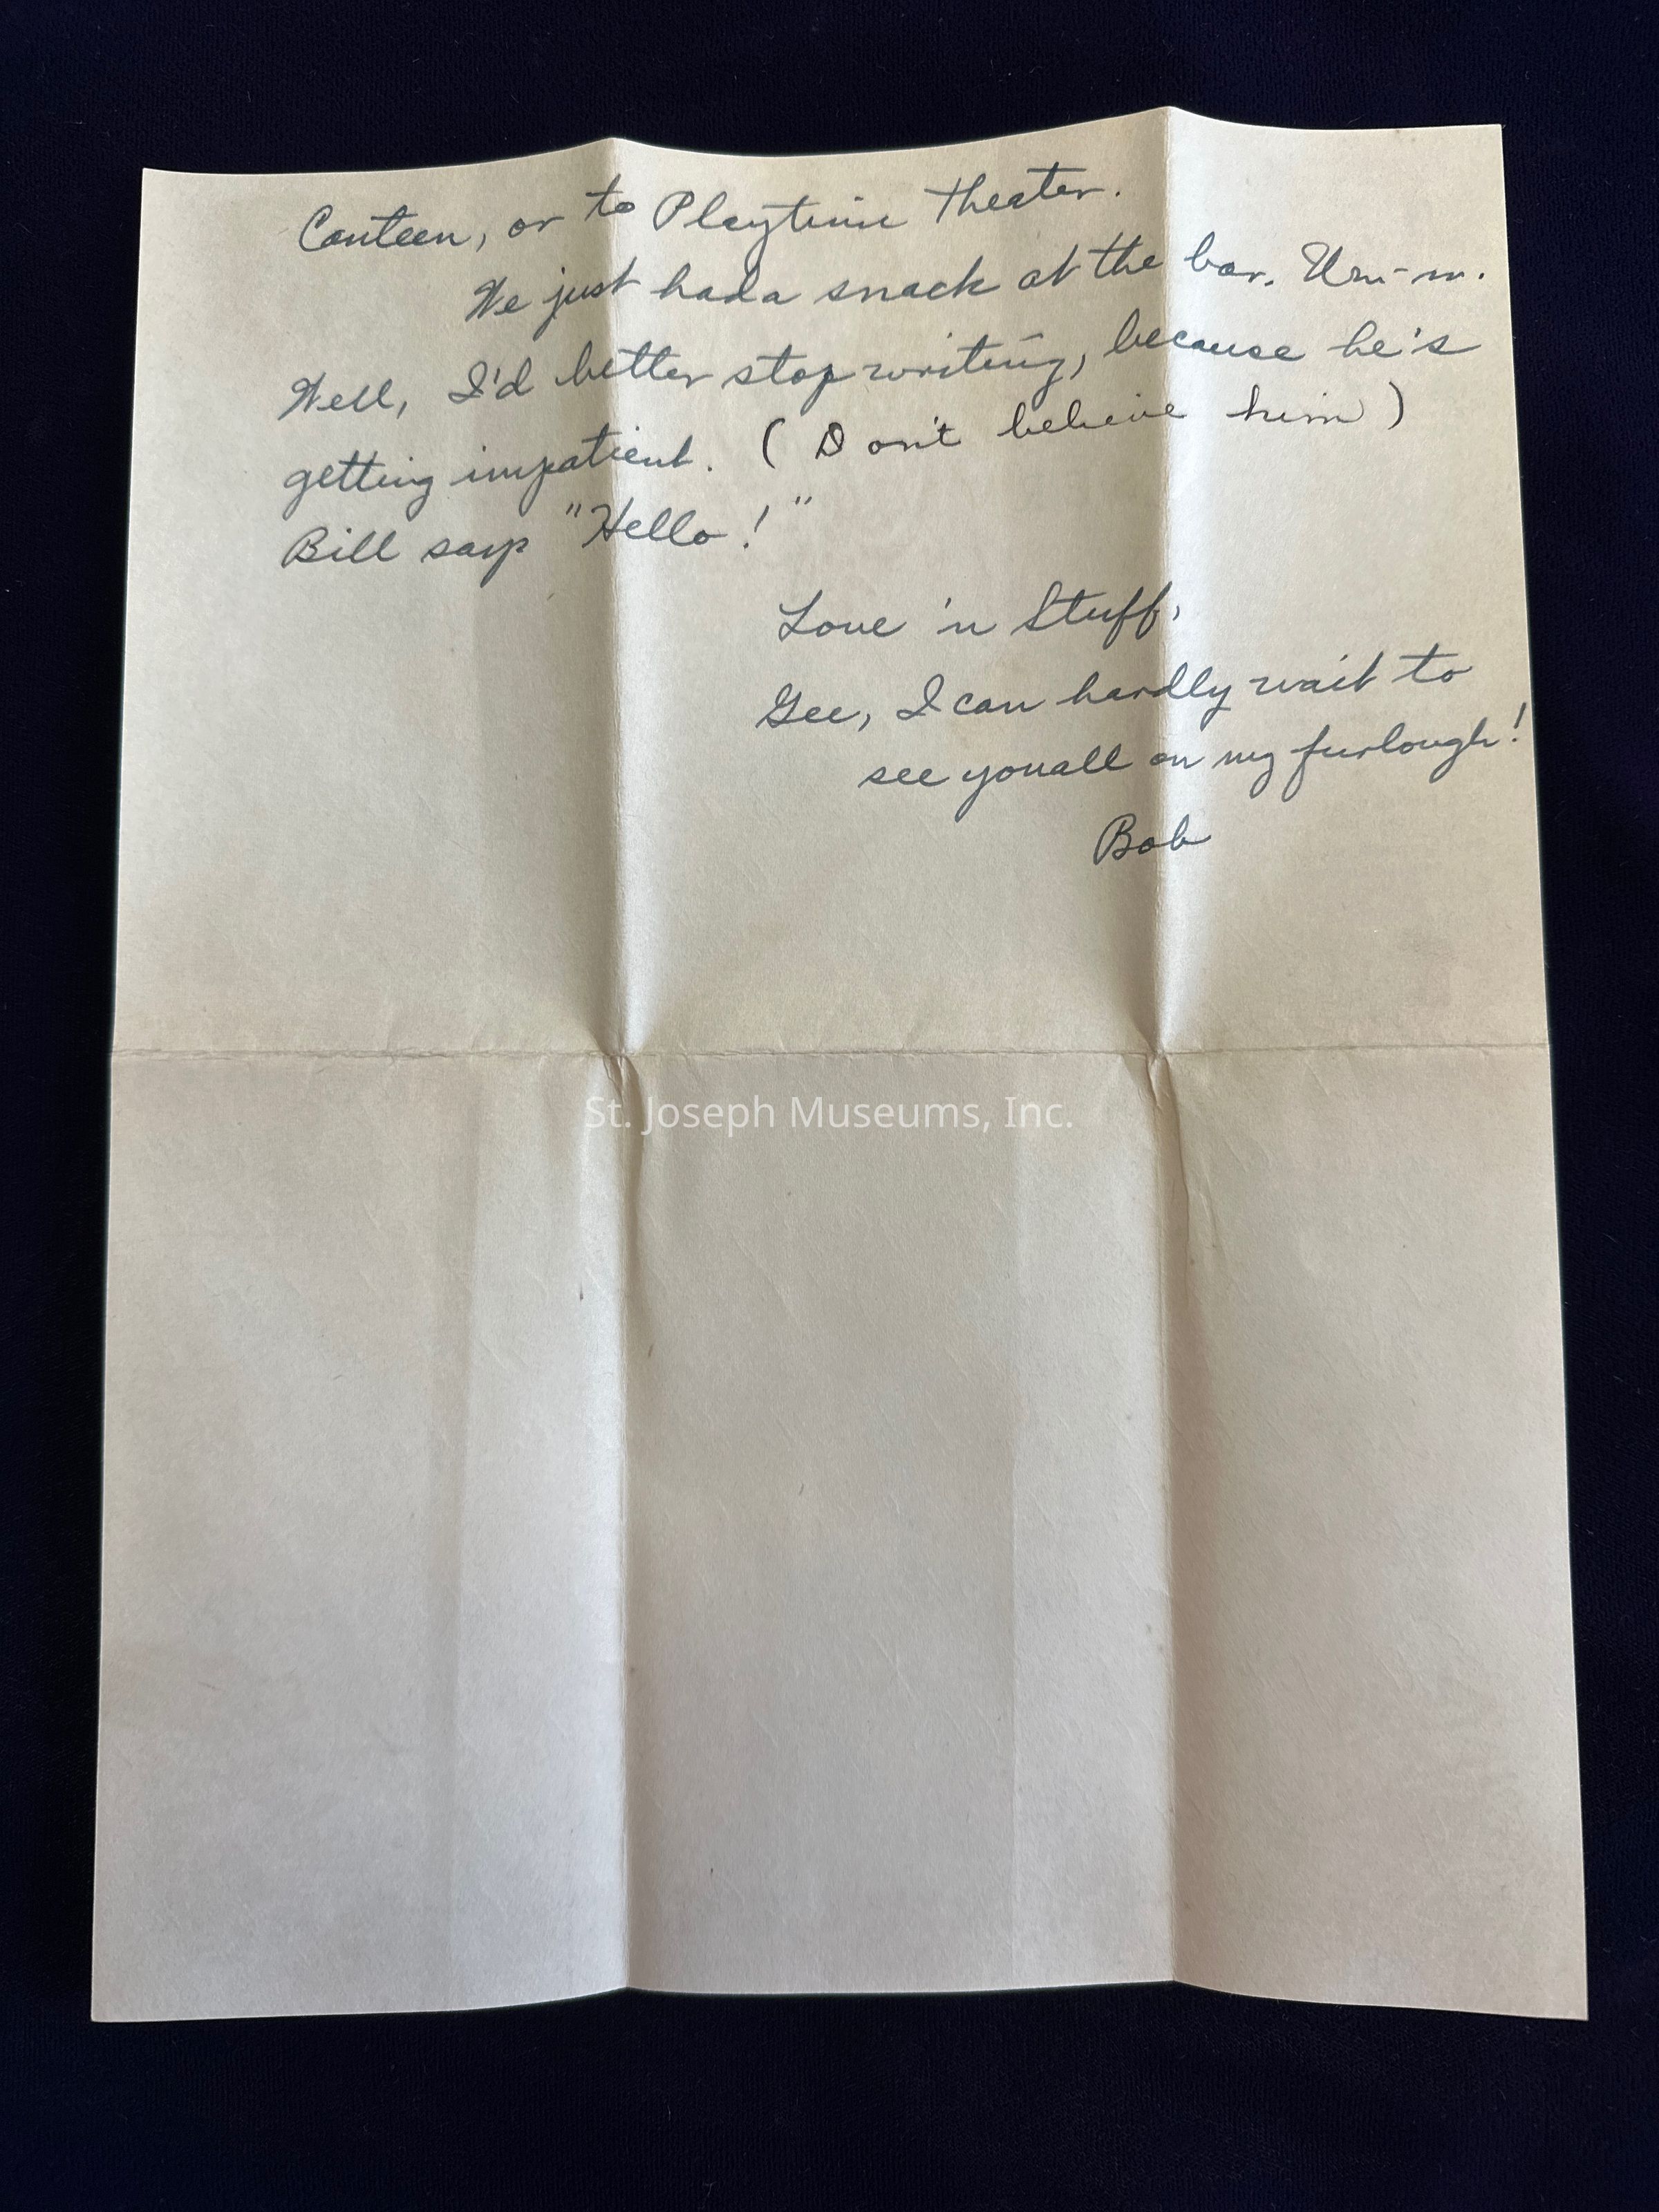 Canteen, or to Playtime Theater.
We just had a snack at the bar. Um-m.
Well, I'd better stop writing, because he's
getting impatient. (Don't believe him)
Bill says "Hello!"
Love 'n Stuff,
Gee, I can hardly wait to
see you all on my furlough!
Bob
St. Joseph Museums, Inc.